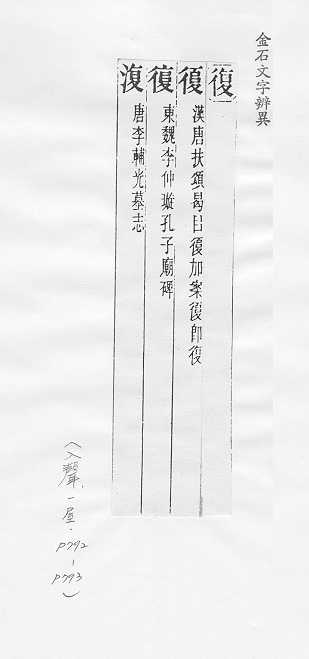 金石文字辨異
復
復 漢唐扶頌曷㠯復加案復即復
復 東魏李仲璇孔子廟碑
𣸪 唐李輔光墓志
(入聲,一屋,P792-P793)